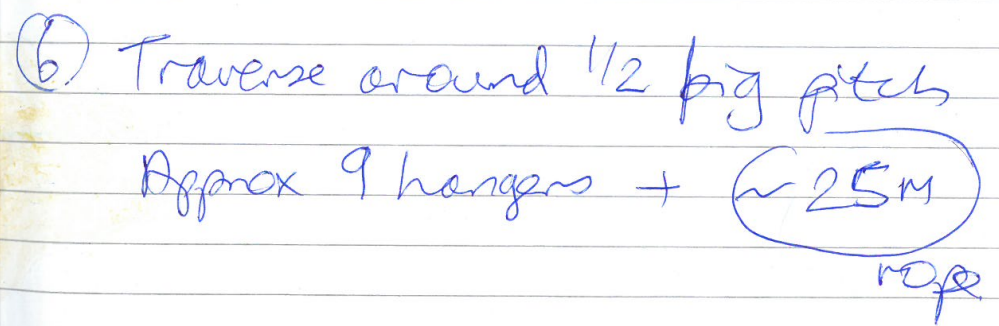 ⑥ Traverse around 1/2 big pitch
Approx 9 hangers + ~25m
rope